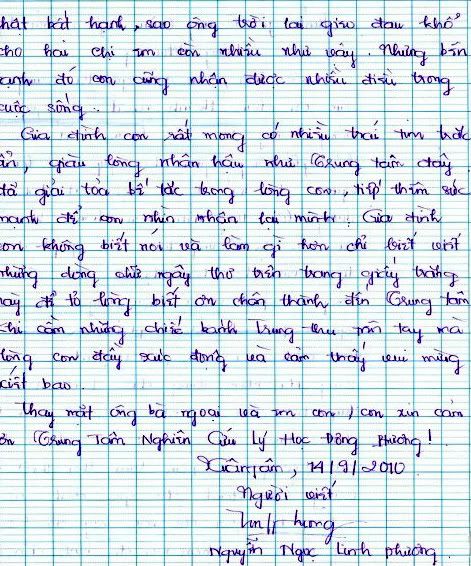 hật bất hạnh, sao ông trời lại gieo đau khổ
cho hai chị em còn nhiều như vậy. Nhưng bên
cạnh đó con cũng nhận được nhiều điều trong
cuộc sống.
Gia đình con rất mong có nhiều trái tim trắc
ẩn, giàu lòng nhân hậu như Trung tâm đây
đã giải tỏa bế tắc trong lòng con, tiếp thêm sức
mạnh để con nhìn nhận lại mình. Gia đình
con không biết nói và làm gì hơn chỉ biết viết
những dòng chữ ngây thơ trên trang giấy trắng
này để tỏ lòng biết ơn chân thành đến Trung tâm
chỉ cầm những chiếc bánh Trung thu trên tay mà
lòng con đầy xúc động và cảm thấy vui mừng
biết bao.
Thay mặt ông bà ngoại và em con, con xin cảm
ơn Trung Tâm Nghiên Cứu Lý Học Đông Phương!
Xuân Tâm, 14/9/2010
Người viết
Linh Phương
Nguyễn Ngọc Linh Phương